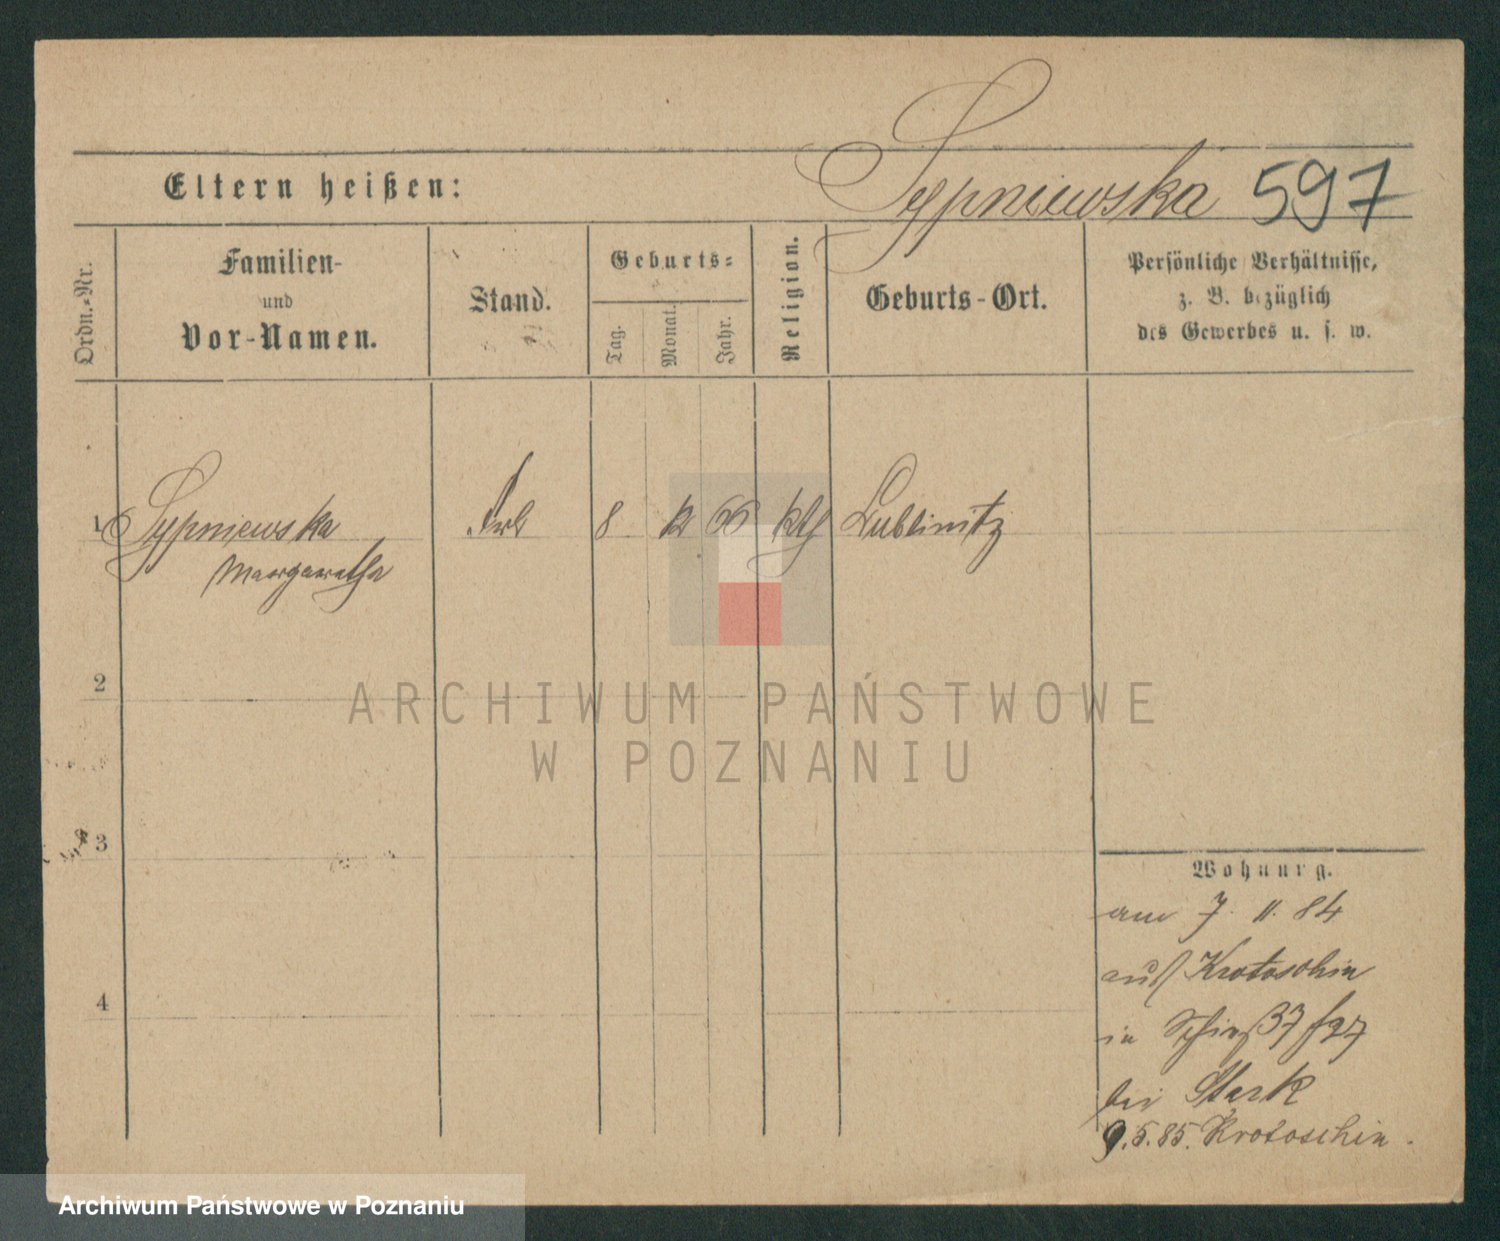 Sypniewska 597
Eltern heißen:
Ordn.-Nr.
Familien-
und
Vor-Namen.
Stand.
Geburts-
Tag.
Monat.
Jahr.
Religion.
Geburts-Ort.
Persönliche Verhältnisse,
z. B. bezüglich
des Gewerbes u. s. w.
1 Sypniewska 8 12 66 kth Lublinitz
Margaretha
2
3
4
Wohnung.
am 7. 11. 84
aus Krotoschin
in 37
bei Stark
9.5.85. Krotoschin.
ARCHIWUM PAŃSTWOWE
W POZNANIU
Archiwum Państwowe w Poznaniu